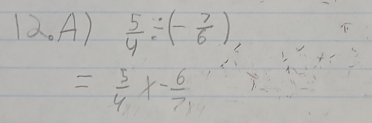 12.A) 5/4 ÷ (- 7/6)
= 5/4 × - 6/7